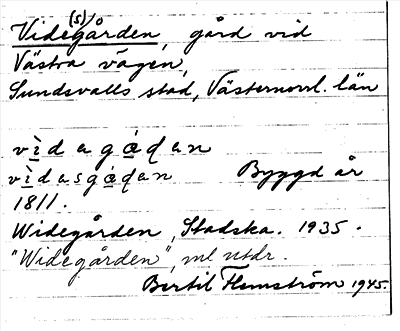 Vide(s)gården, gård vid
Västra vägen,
Sundsvalls stad, Västernorrl. län
vìdagáḍan
vìdasgáḍan Byggd år
1811.
Widegården, Stadska. 1935.
"Widegården", ml utdr.
Bertil Flemström 1945.